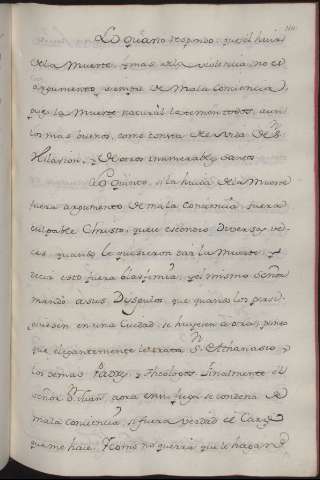 Lo quarto respondo, que el huir
de la Muerte, y mas de la violencia no es
argumento siempre de mala conciencia,
pues la Muerte natural la temen todos, aun
los mas buenos, como consta de Vida de S.
Hilarion, y de otros innumerables santos
Lo Quinto, si la huida de la Muerte
fuera argumento de mala Conciencia fuera
culpable Christo, que se escondio diversas ve-
ces quando le quisieron dar la Muerte. Y
decir esto fuera blasfemia, y el mismo Señor
mandó a sus Discipulos que quando los persi-
guiesen en una Ciudad se huiesen a otra, punto
que elegantemente trata Sn. Athanasio, y
los demas Padres, y Theologos. Finalmente el
señor Dn. Juan, aora en su fuga se condena de
mala conciencia, si fuera verdad el Cargo
que me hace. Y como no querria que le hagan